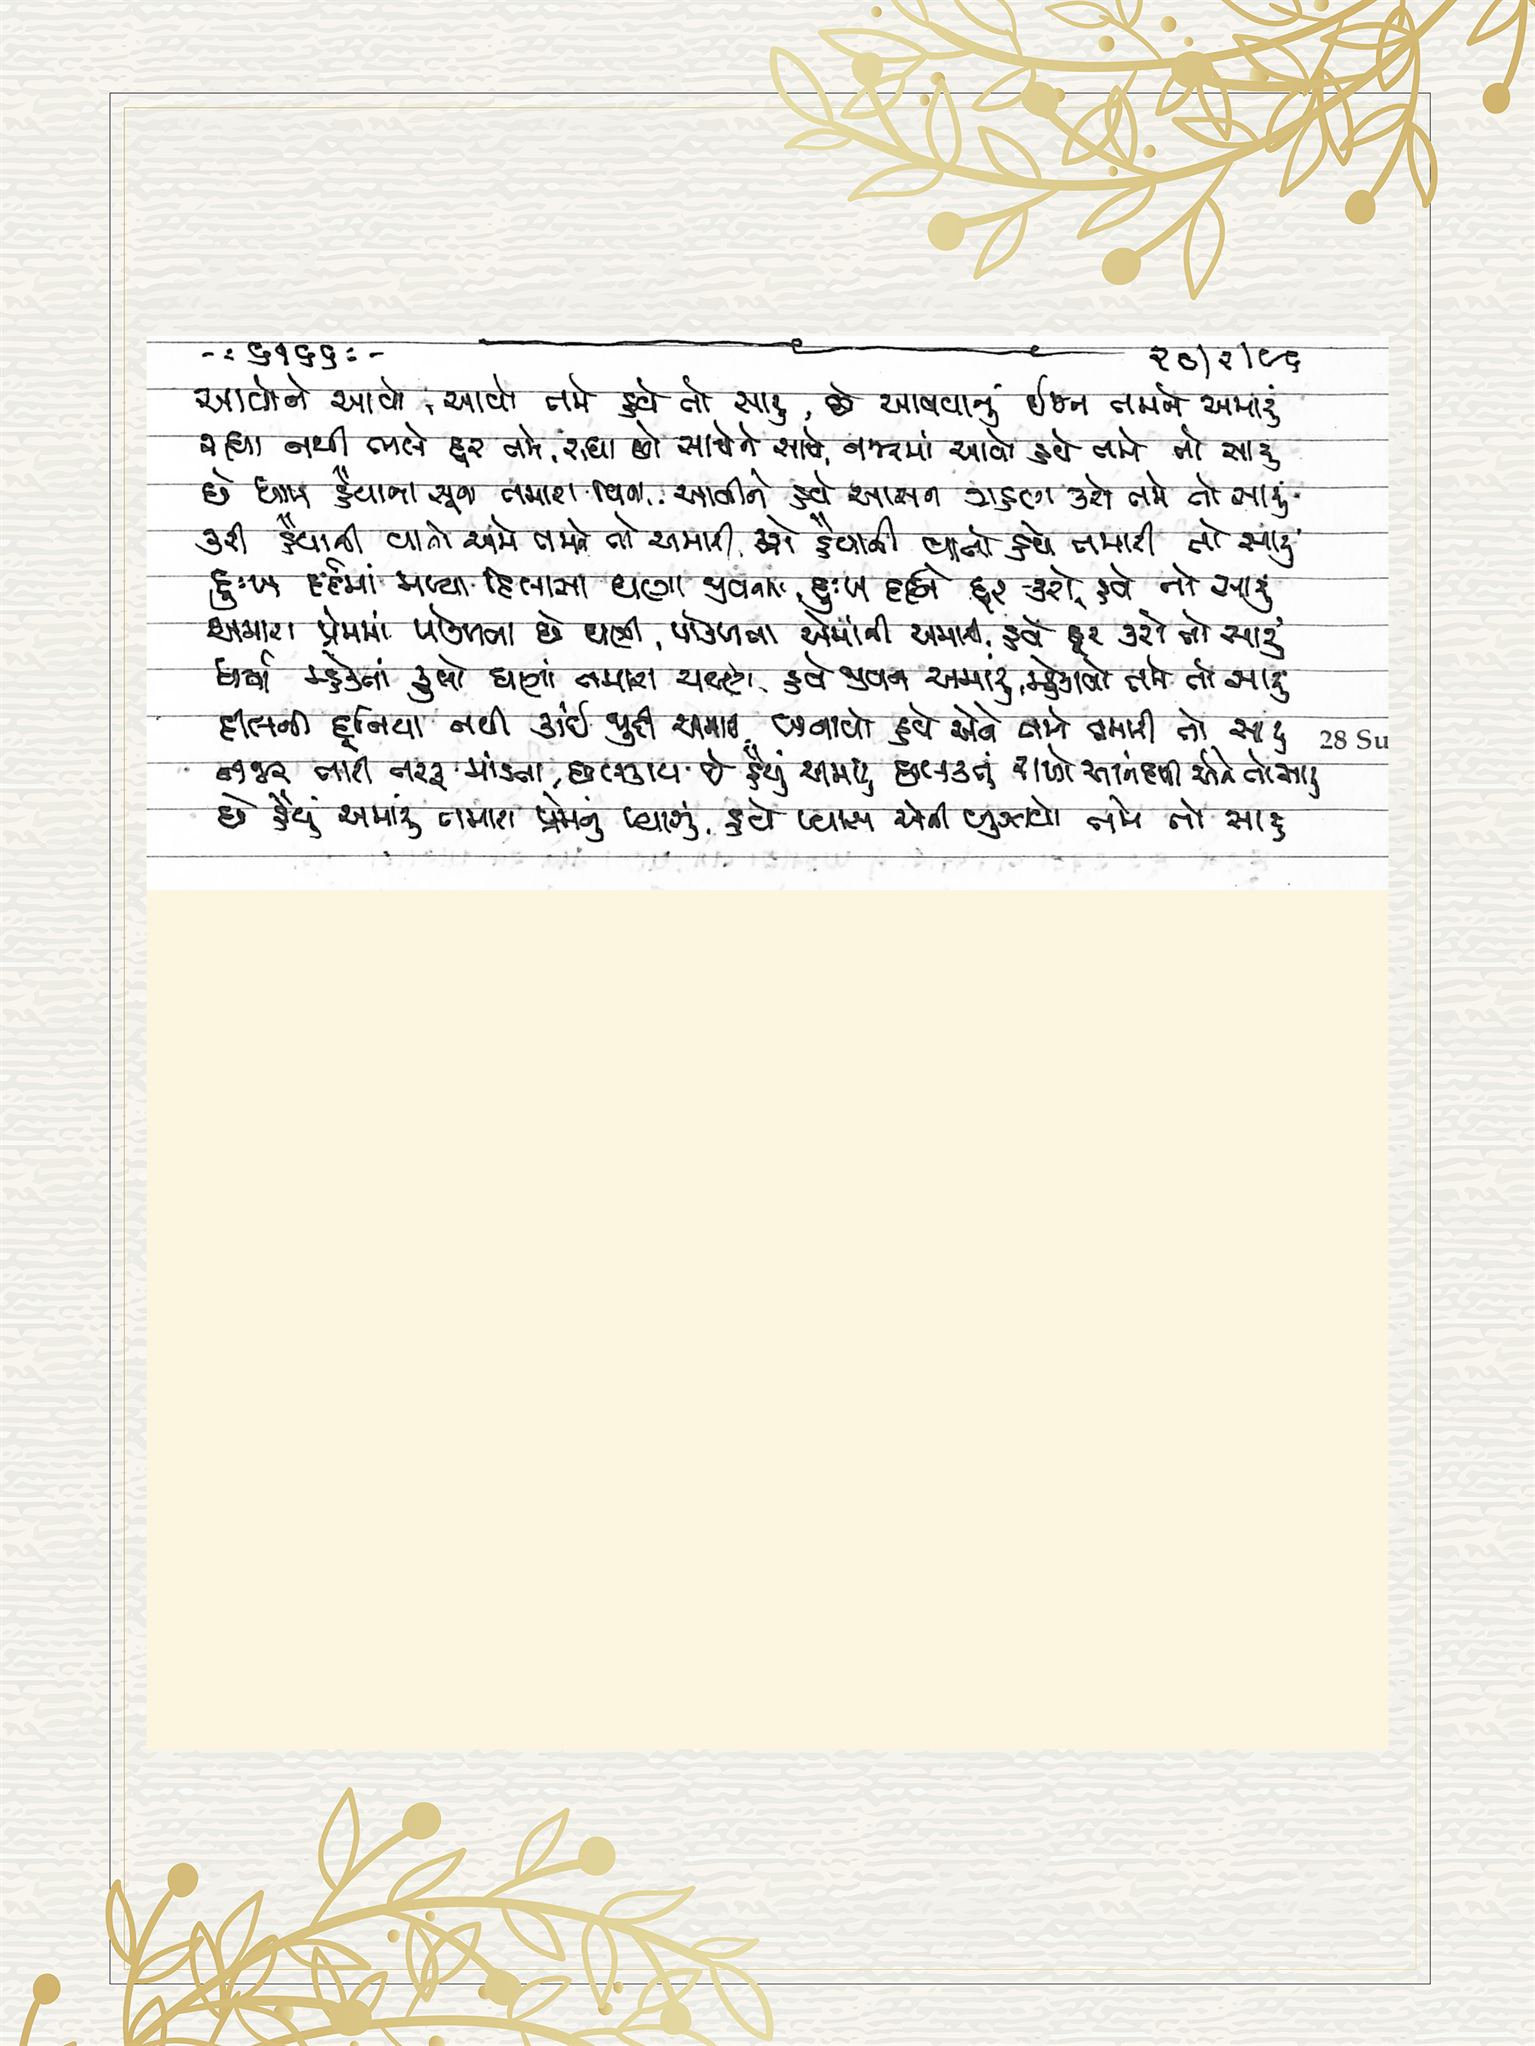 -: ૬૧૬૬ :-
૨૭/૨/૯૬
આવોને આવો, આવો તમે હવે તો સારું, છે આવવાનું ઈજન તમને અમારું
રહ્યા નથી ભલે દૂર તમે, રહ્યા છો સાથેને સાથે, નજરમાં આવો હવે તમે તો સારું
છે હૈયાના તમારા વિના, આવીને હવે આસન ગ્રહણ કરો તમે તો સારું
કરી હૈયાની વાતો અમે તમને તો અમારી, કરો હૈયાની વાતો હવે તમારી તો સારું
દુઃખ દર્દમાં મળ્યા દિલાસા ઘણા જીવનમાં, દુઃખ દર્દને દૂર કરો, હવે તો સારું
અમારા પ્રેમમાં પડેળતા છે ઘણી, પડેળતા એમાંની અમારી, હવે દૂર કરો તો સારું
ધર્યા મ્હેકતાં ફુલો ઘણાં તમારા ચરણે, હવે જીવન અમારું, મ્હેકાવો તમે તો સારું
દીલની દૂનિયા નથી કાંઈ જુદી અમારી, બનાવો હવે એને તમે તમારી તો સારું
નજર તારી નરફ માંડતા, છલકાય છે હૈયું અમારું છલકતું રાખો આનંદથી એને તો સારું
28 Su
છે હૈયું અમારું તમારા પ્રેમનું પ્યાસું, હવે પ્યાસ એની બુઝાવો તમે તો સારું